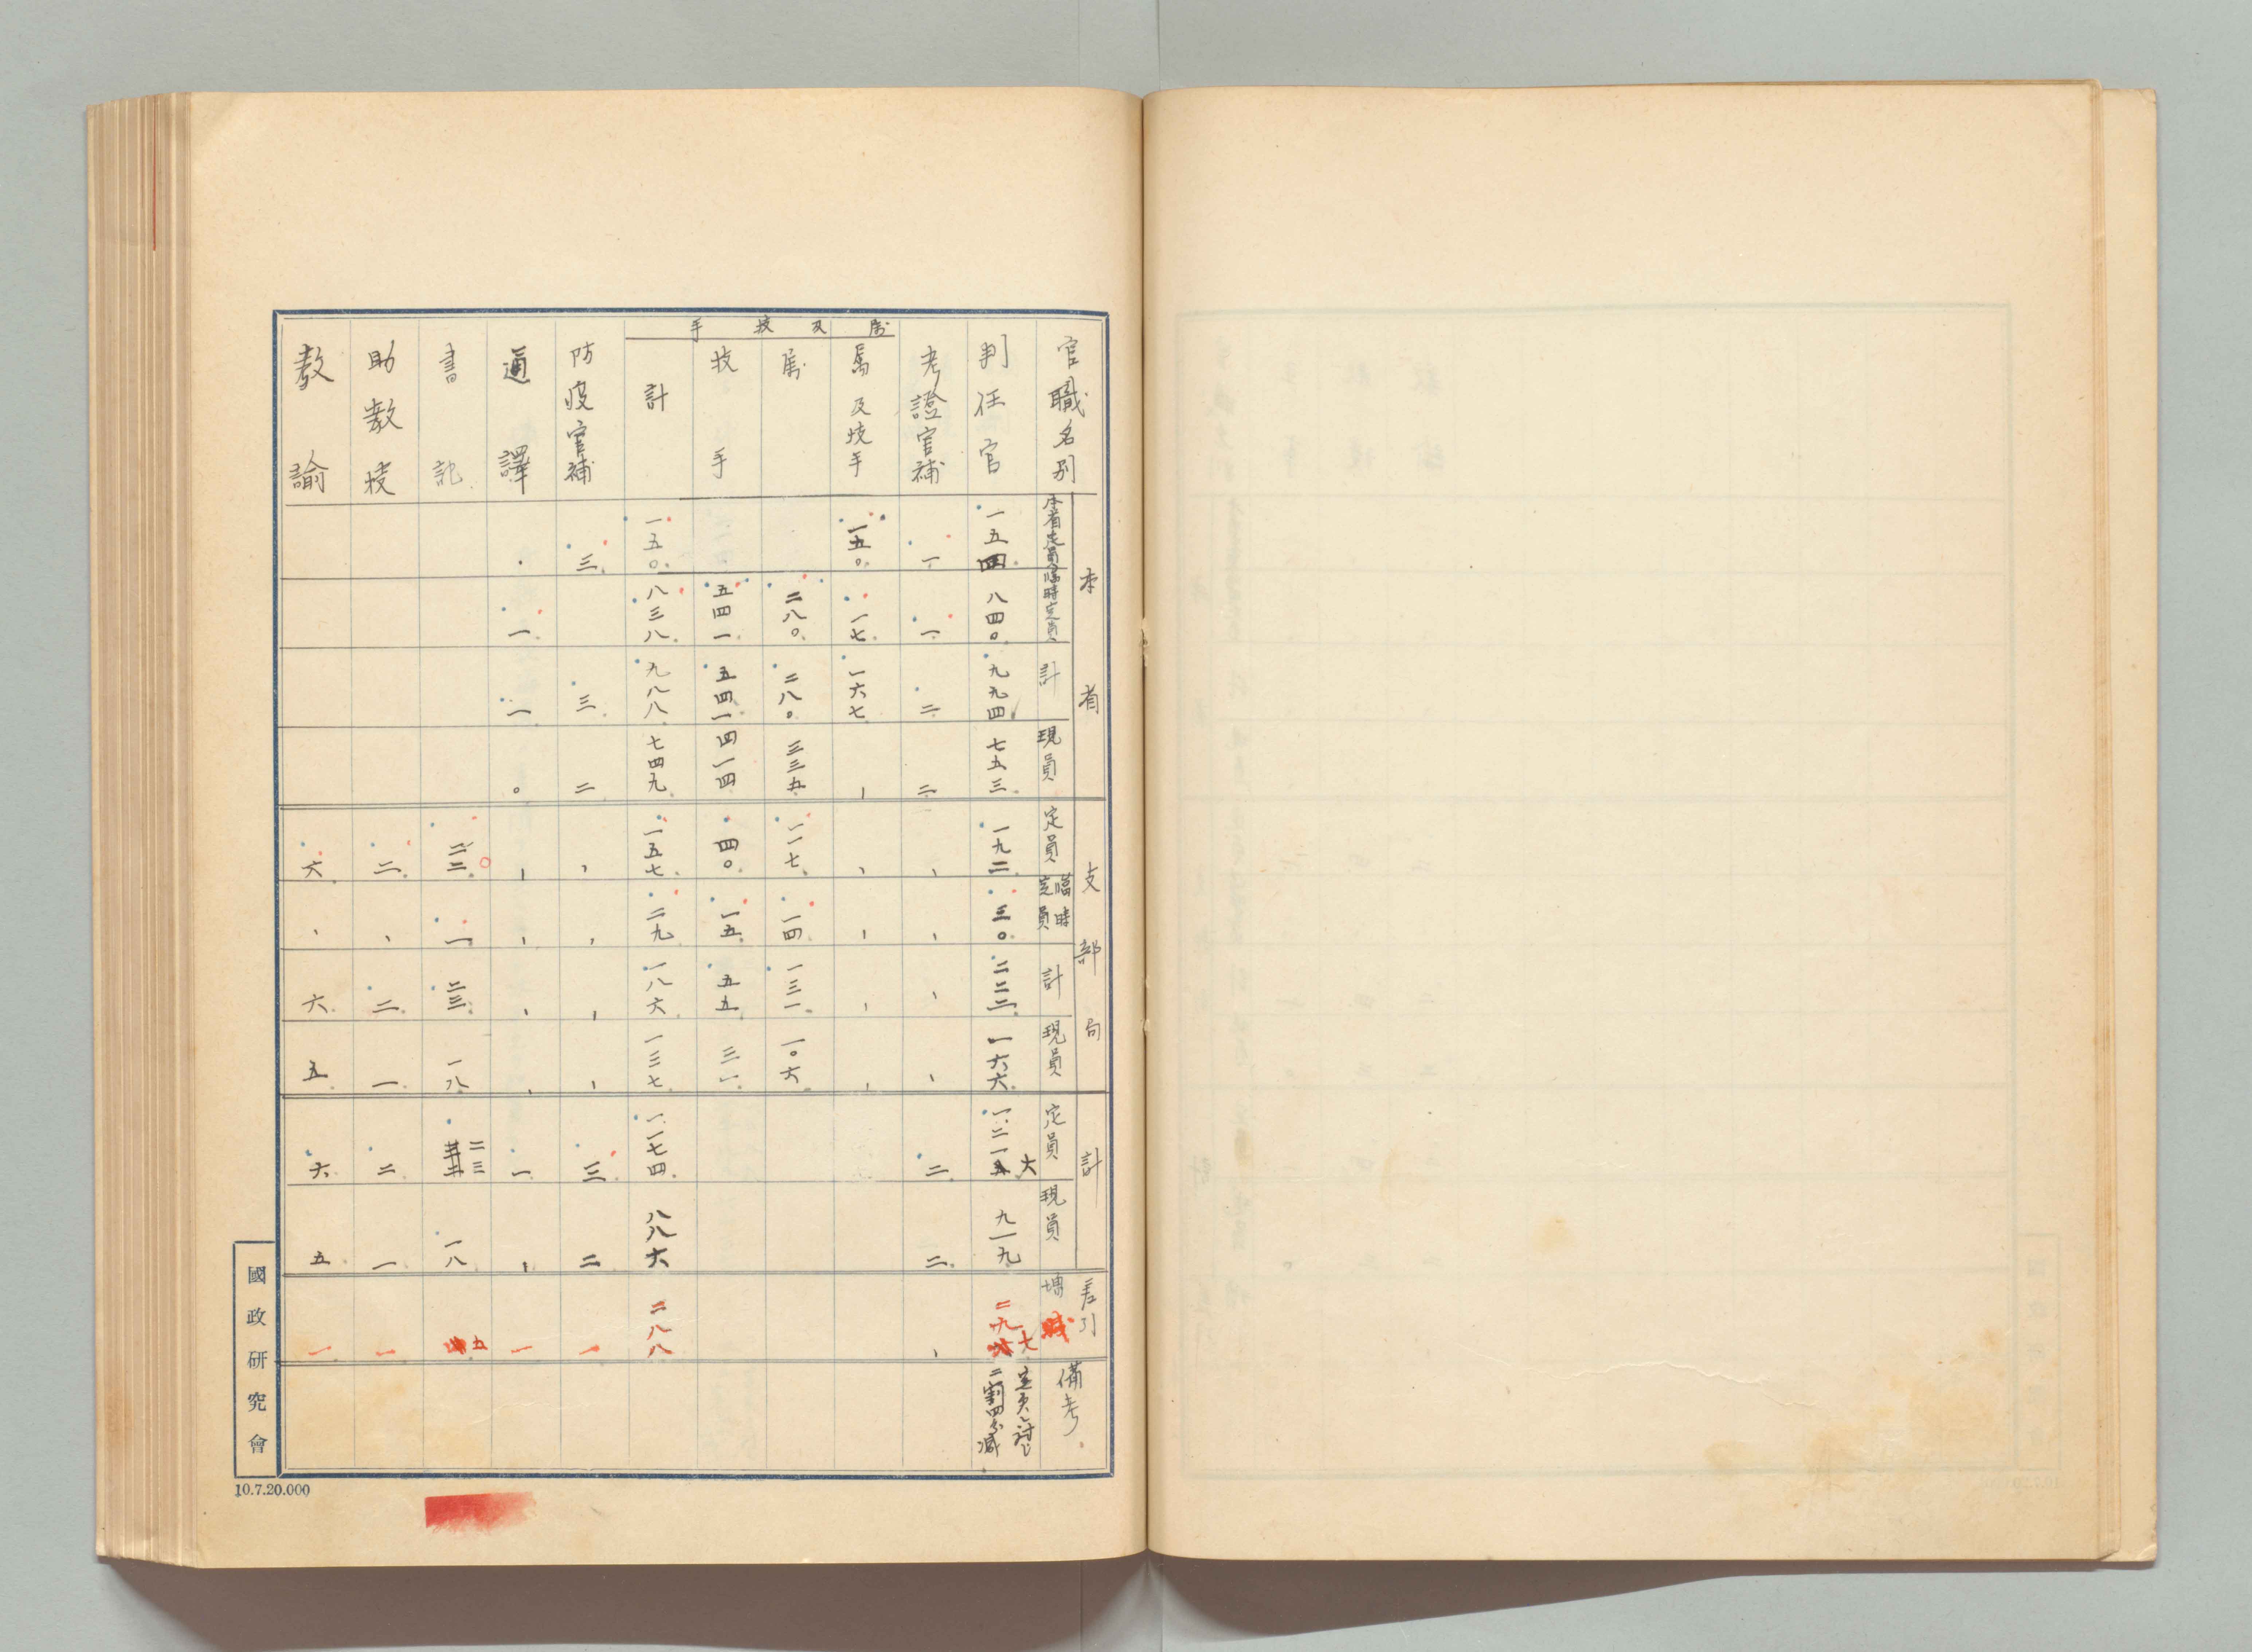 官職名別
本省
本省定員
臨時定員
計
現員
支部局
定員
臨時定員
計
現員
計
定員
現員
差引
増減
備考
判任官
一五四
八四〇
九九四
七五三
一九二
三〇
二二二
一六六
一、二一六
九一九
二九七
定員ニ対シ
二割四分減
考證官補
一
一
二
二
、
、
、
、
二
二
、
属及技手
属及技手
一五〇
一七
一六七
、
、
、
、
、
属
二八〇
二八〇
三三五
一一七
一四
一三一
一〇六
技手
五四一
五四一
四一四
四〇
一五
五五
三一
計
一五〇
八三八
九八八
七四九
一五七
二九
一八六
一三七
一、一七四
八八六
二八八
防疫官補
三
三
二
、
、
、
、
三
二
一
通譯
、
一
一
〇
、
、
、
、
一
、
一
書記
二二
一
二三
一八
二三
一八
五
助教授
二
、
二
一
二
一
一
教諭
六
、
六
五
六
五
一
國政研究會
10.7.20.000